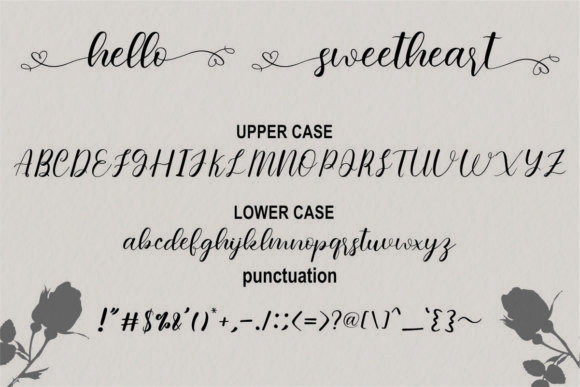 hello sweetheart
UPPER CASE
ABCDEFGHIJKLMNOPQRSTUVWXYZ
LOWER CASE
abcdefghijklmnopqrstuvwxyz
punctuation
!"#$%&'()*+,-./:;<=>?@[\]^_`{}~